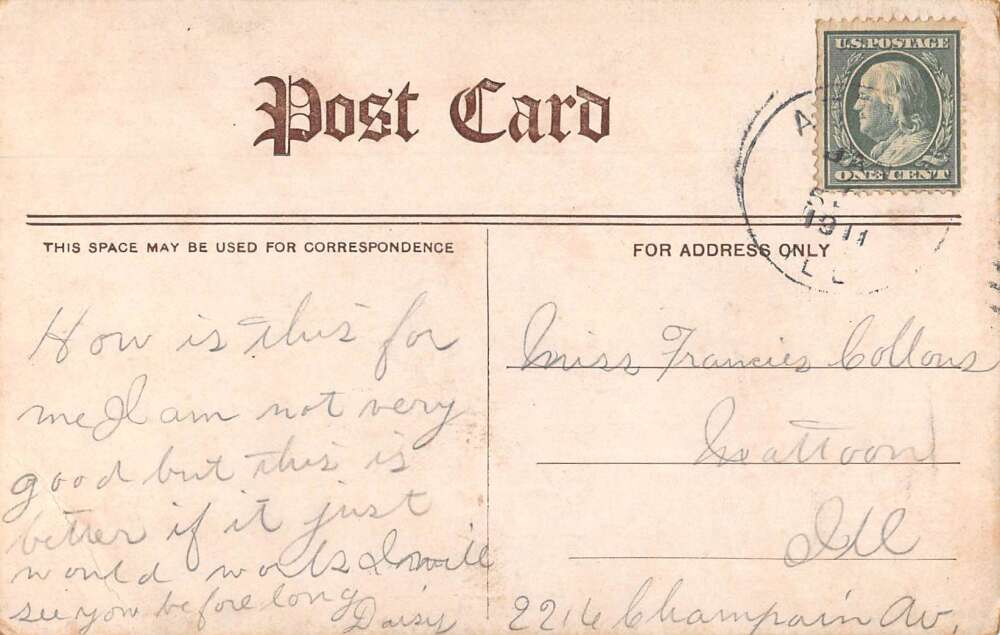 Post Card
U.S. POSTAGE
ONE CENT
1911
ILL
THIS SPACE MAY BE USED FOR CORRESPONDENCE
FOR ADDRESS ONLY
How is this for
me I am not very
good but this is
better if it just
would work I will
see you before long
Daisy
Miss Francies Collons
Mattoon
Ill
2216 Champain Av.